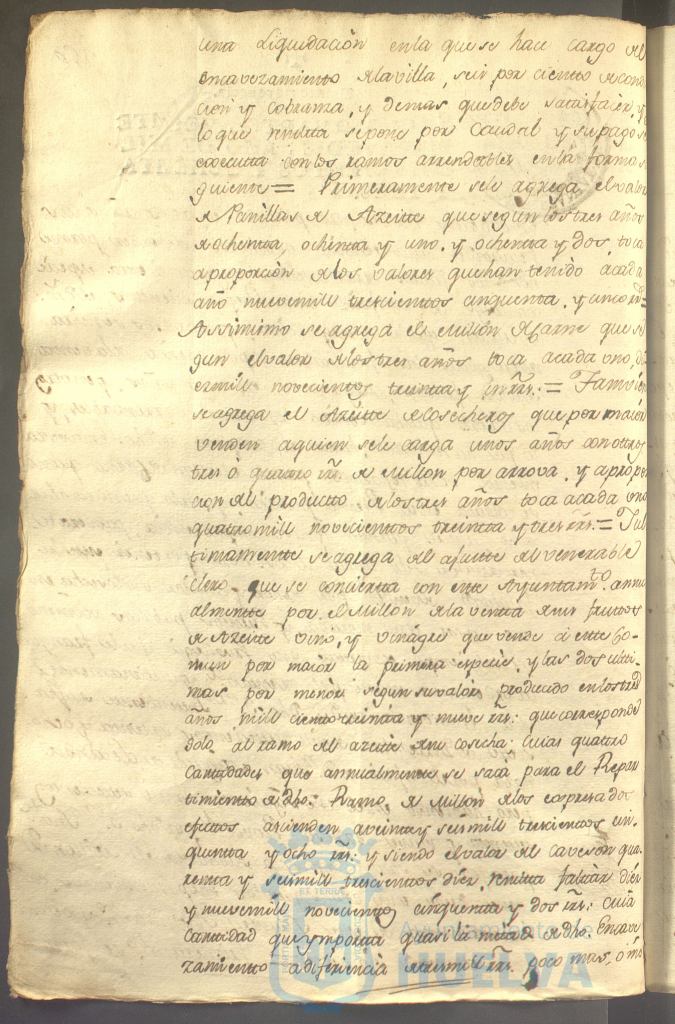 una Liquidación enla que se hace cargo del
encavezamiento dela villa, seis por ciento de cond
cion y cobranza, y demas que debe satisfacer, y
lo que rendita se pone por Caudal y su pago se
executta con los ramos arrendables en la forma si
guiente = Primeramente sele agrega el valor
de Panillas de Azeitte que segun los tres años
de ochentta, ochentta y uno, y ochentta y dos, toca
aproporción de los valores que han tenido acada
año nuevemill trescienttos cinquenta y cinco rrs=
Assimismo se agrega el Millón de Carne que se
gun el valor de los tres años toca acada uno di
ezmill novecientos treinta y un rrs: = Tamvien
se agrega el Azeitte de Cosecheros que por maior
venden aquien sele carga unos años con ottros
tres ò quattro rrs. de Millon por arrova, y apropor
cion del productto de los tres años toca acada uno
quattromill novecienttos treintta y tres rrs. = Y ul
timamente se agrega del ajuste del venerable
Clero que se concierta con este Ayuntam.to annu
almente por el Millon dela ventta de sus fruttos
de Azeitte vino, y vinagre que vende à este Co-
mun por maior la primera especie, y las dos ulti-
mas por menor segun su valor producido en los tres
años mill ciento treinta y nueve rrs: que corresponde
solo al ramo del azeite de su cosecha; cuias quattro
Canttidades que annualmente se saca para el Repar-
timiento de dho. Ramo de Millon de los expresados
efectos ascienden a veinte y seismill trescientos cin
quentta y ocho rrs: y siendo el valor del Caveson qua
renta y seismill trescientos diez, rendita faltar diez
y nuevemill novecientos cinquentta y dos rrs: cuia
Cantidad que ymportta quasi la mitad de dho. Encave
zamiento a diferiencia de tresmill rrs. poco mas, o mè
EX TERRAE
Ayuntamiento de
HUELVA